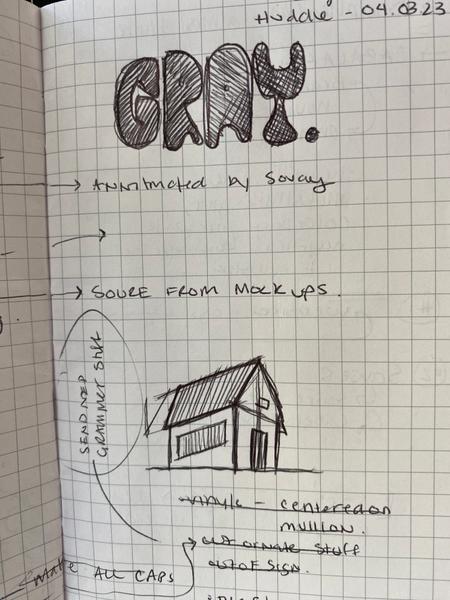 Huddle - 04.03.23
GRAY.
→ ANNImated by Sovay
→
→ SOURE FROM MOCKUPS.
SEND NEP
GRAMMET Stuff
vinyls - centered on
mullion.
cut ornate stuff
out of sign.
Make ALL CAPS